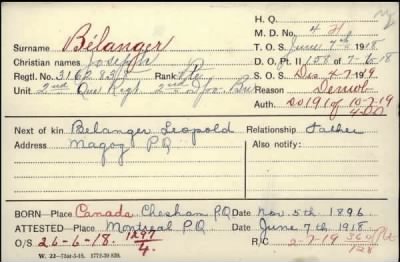 H. Q.
Surname Bélanger M. D. No. 4
Christian names Joseph T. O. S. June 7th 1918
Regtl. No. Rank Pte D. O. Pt. II 158 of 7-6-18
Unit 2nd Que Regt 2nd S. O. S. Dis 4-7-19
Reason Demob
Auth. DO191 of 10-7-19
Next of kin Belanger Leopold Relationship Father
Address Magog P.Q Also notify:
BORN Place Canada, Chesham P.Q Date Nov. 5th 1896
ATTESTED Place Montreal P.Q Date June 7th 1918
O/S 26-6-18. 1297/4. R/C 2-7-19